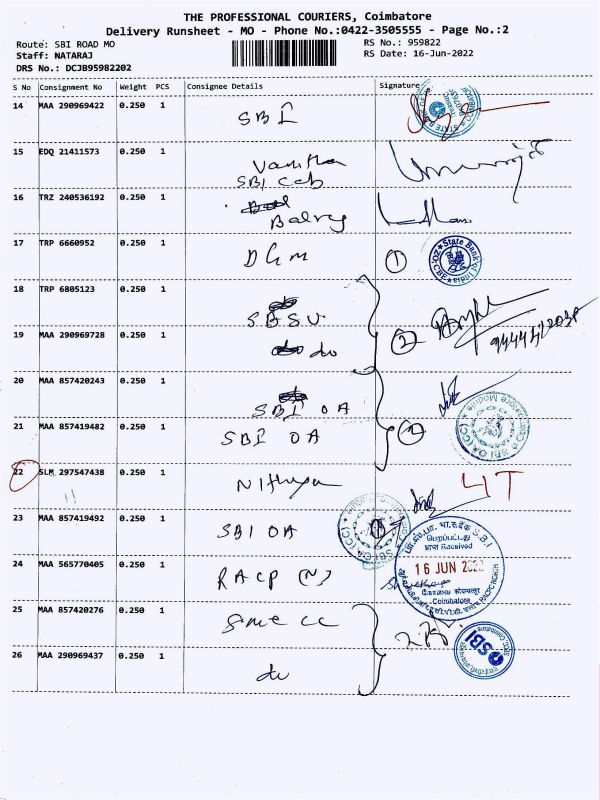 THE PROFESSIONAL COURIERS, Coimbatore
Delivery Runsheet - MO - Phone No.:0422-3505555 - Page No.:2
Route: SBI ROAD MO
Staff: NATARAJ
DRS No.: DCJB95982202
RS No.: 959822
RS Date: 16-Jun-2022
S No Consignment No Weight PCS Consignee Details Signature
14 MAA 290969422 0.250 1 SBI
15 EDQ 21411573 0.250 1 Vanitha
SBI
16 TRZ 240536192 0.250 1
17 TRP 6660952 0.250 1 DGM 1
State Bank of India
18 TRP 6805123 0.250 1
19 MAA 290969728 0.250 1 do 2
20 MAA 857420243 0.250 1 SBI OA
21 MAA 857419482 0.250 1 SBI OA
22 SLM 297547438 0.250 1 Nithya
23 MAA 857419492 0.250 1 SBI OA 1
24 MAA 565770405 0.250 1 RACP (N)
பெறப்பட்டது
प्राप्त Received
16 JUN 2022
கோவை कोयम्बत्तूर
Coimbatore
25 MAA 857420276 0.250 1 SME CC
SBI
26 MAA 290969437 0.250 1 do